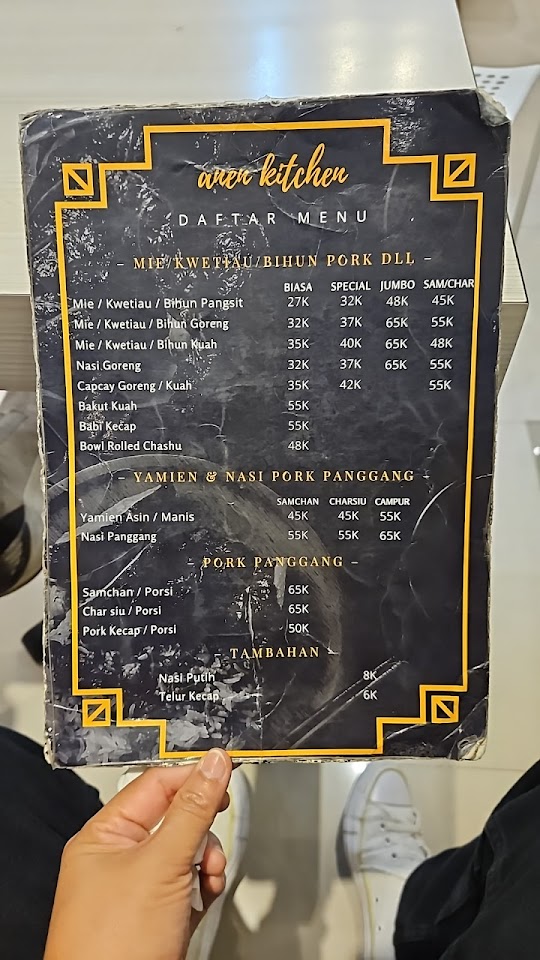 anen kitchen
DAFTAR MENU
- MIE/KWETIAU/BIHUN PORK DLL -
BIASA SPECIAL JUMBO SAM/CHAR
Mie / Kwetiau / Bihun Pangsit 27K 32K 48K 45K
Mie / Kwetiau / Bihun Goreng 32K 37K 65K 55K
Mie / Kwetiau / Bihun Kuah 35K 40K 65K 48K
Nasi Goreng 32K 37K 65K 55K
Capcay Goreng / Kuah 35K 42K 55K
Bakut Kuah 55K
Babi Kecap 55K
Bowl Rolled Chashu 48K
- YAMIEN & NASI PORK PANGGANG -
SAMCHAN CHARSIU CAMPUR
Yamien Asin / Manis 45K 45K 55K
Nasi Panggang 55K 55K 65K
- PORK PANGGANG -
Samchan / Porsi 65K
Char siu / Porsi 65K
Pork Kecap / Porsi 50K
- TAMBAHAN -
Nasi Putih 8K
Telur Kecap 6K